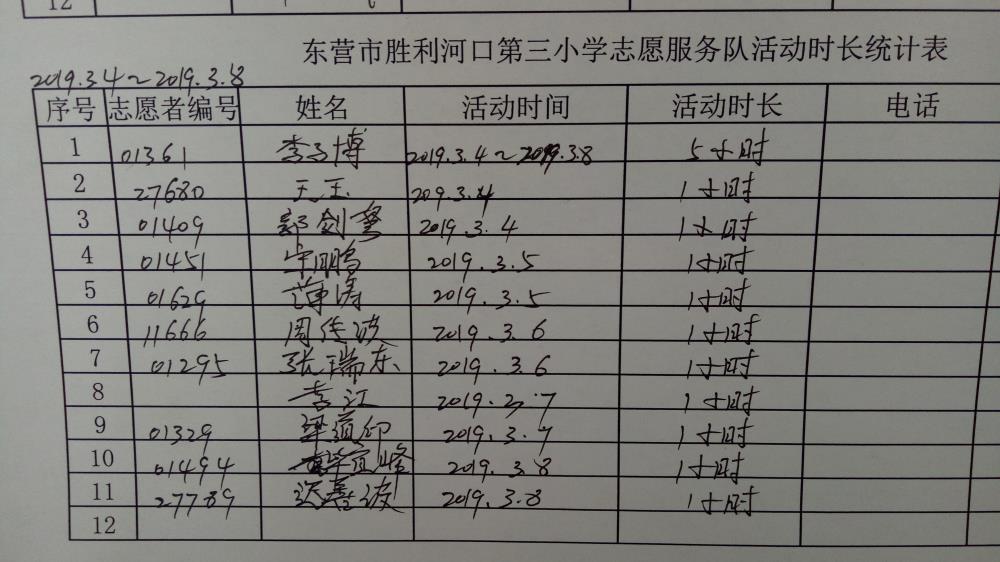 12
东营市胜利河口第三小学志愿服务队活动时长统计表
2019.3.4~2019.3.8
序号 志愿者编号 姓名 活动时间 活动时长 电话
1 01361 李子博 2019.3.4~2019.3.8 5小时
2 27680 王玉 209.3.4 1小时
3 01409 郭剑 2019.3.4 1小时
4 01451 毕鹏 2019.3.5 1小时
5 01629 薄涛 2019.3.5 1小时
6 11666 周传波 2019.3.6 1小时
7 01295 张瑞东 2019.3.6 1小时
8 李江 2019.3.7 1小时
9 01329 梁道 2019.3.7 1小时
10 01494 毕宜峰 2019.3.8 1小时
11 27789 波 2019.3.8 1小时
12